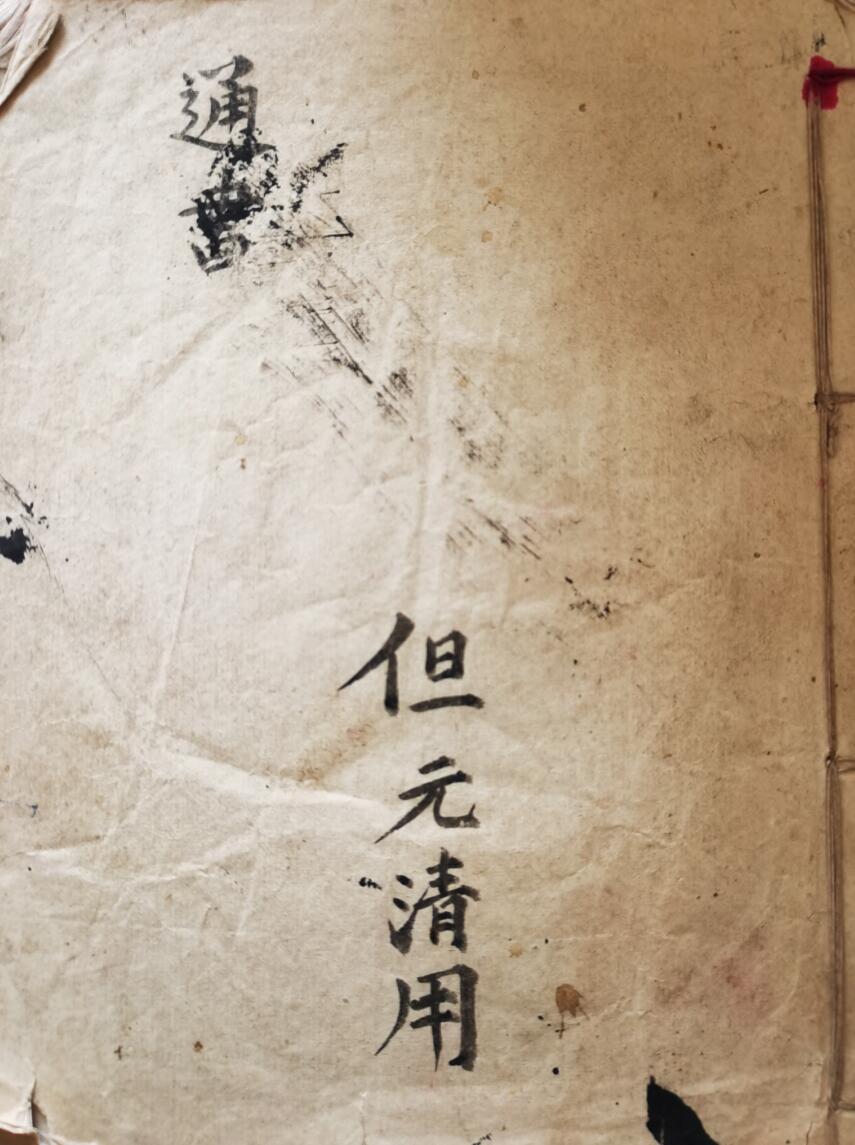 但元清用
通書